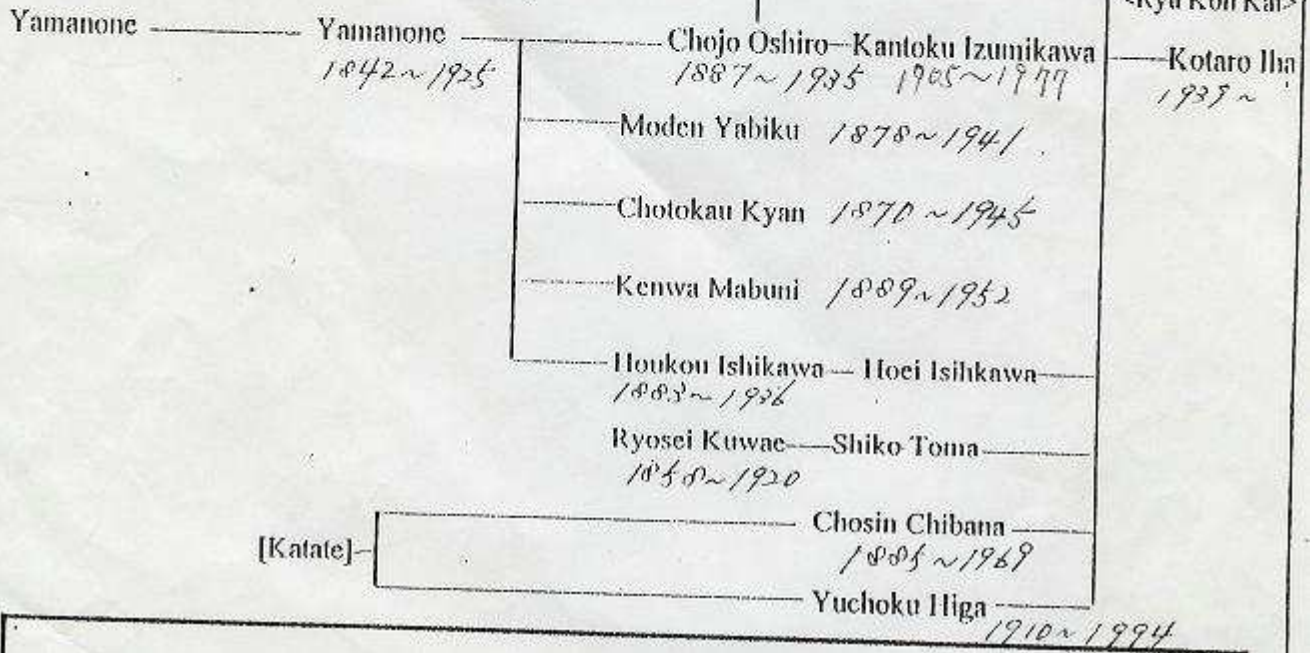 <Ryu Kon Kai>
Yamanone Yamanone Chojo Oshiro Kantoku Izumikawa Kotaro Iha
1842~1925 1887~1935 1905~1977 1939~
Moden Yabiku 1878~1941
Chotokau Kyan 1870~1945
Kenwa Mabuni 1889~1952
Houkou Ishikawa Hoei Isihkawa
1883~1936
Ryosei Kuwae Shiko Toma
1858~1920
Chosin Chibana
[Katate] 1885~1969
Yuchoku Higa
1910~1994